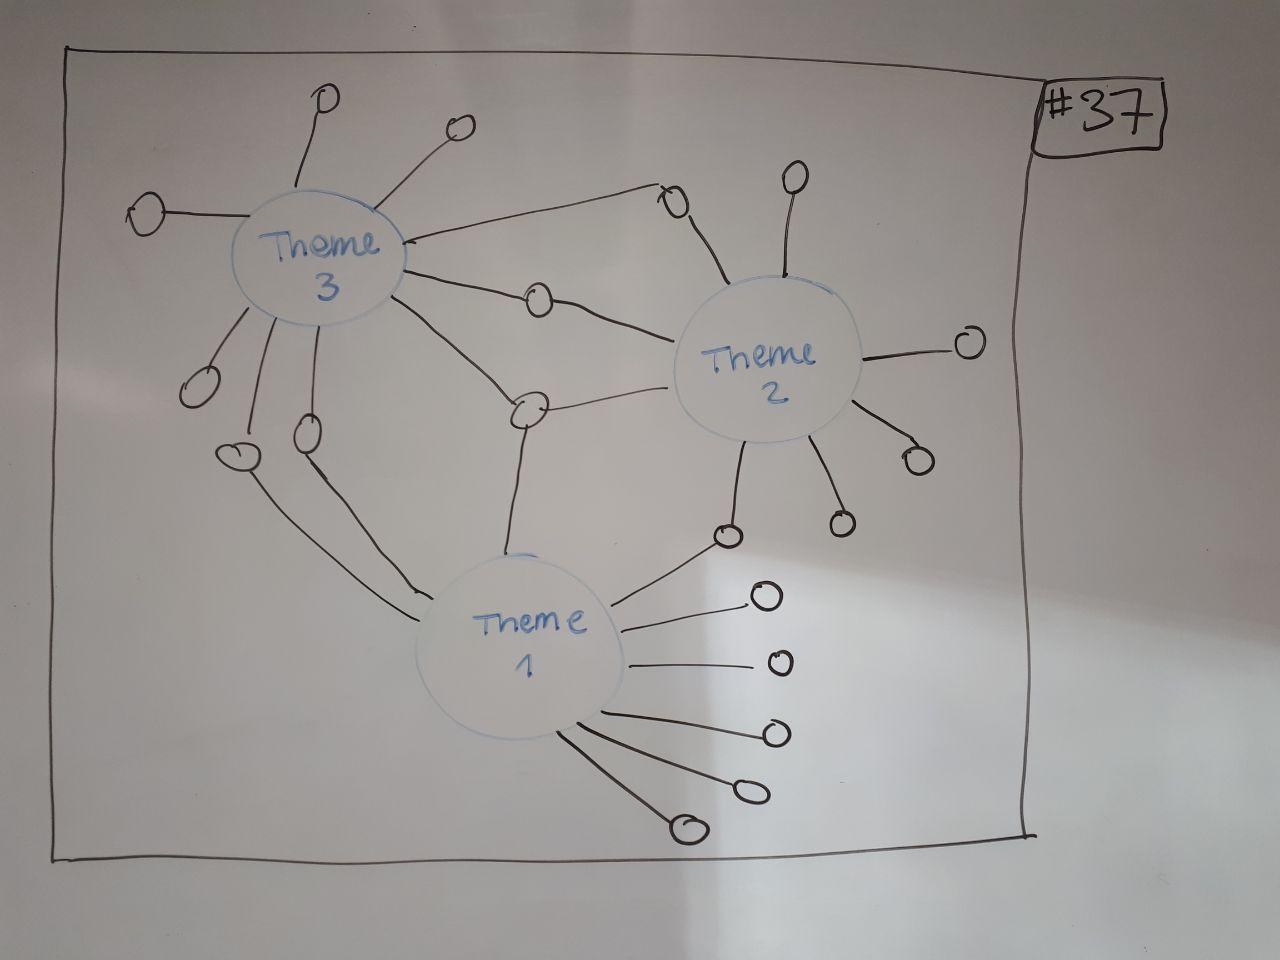 #37
Theme
3
Theme
2
Theme
1